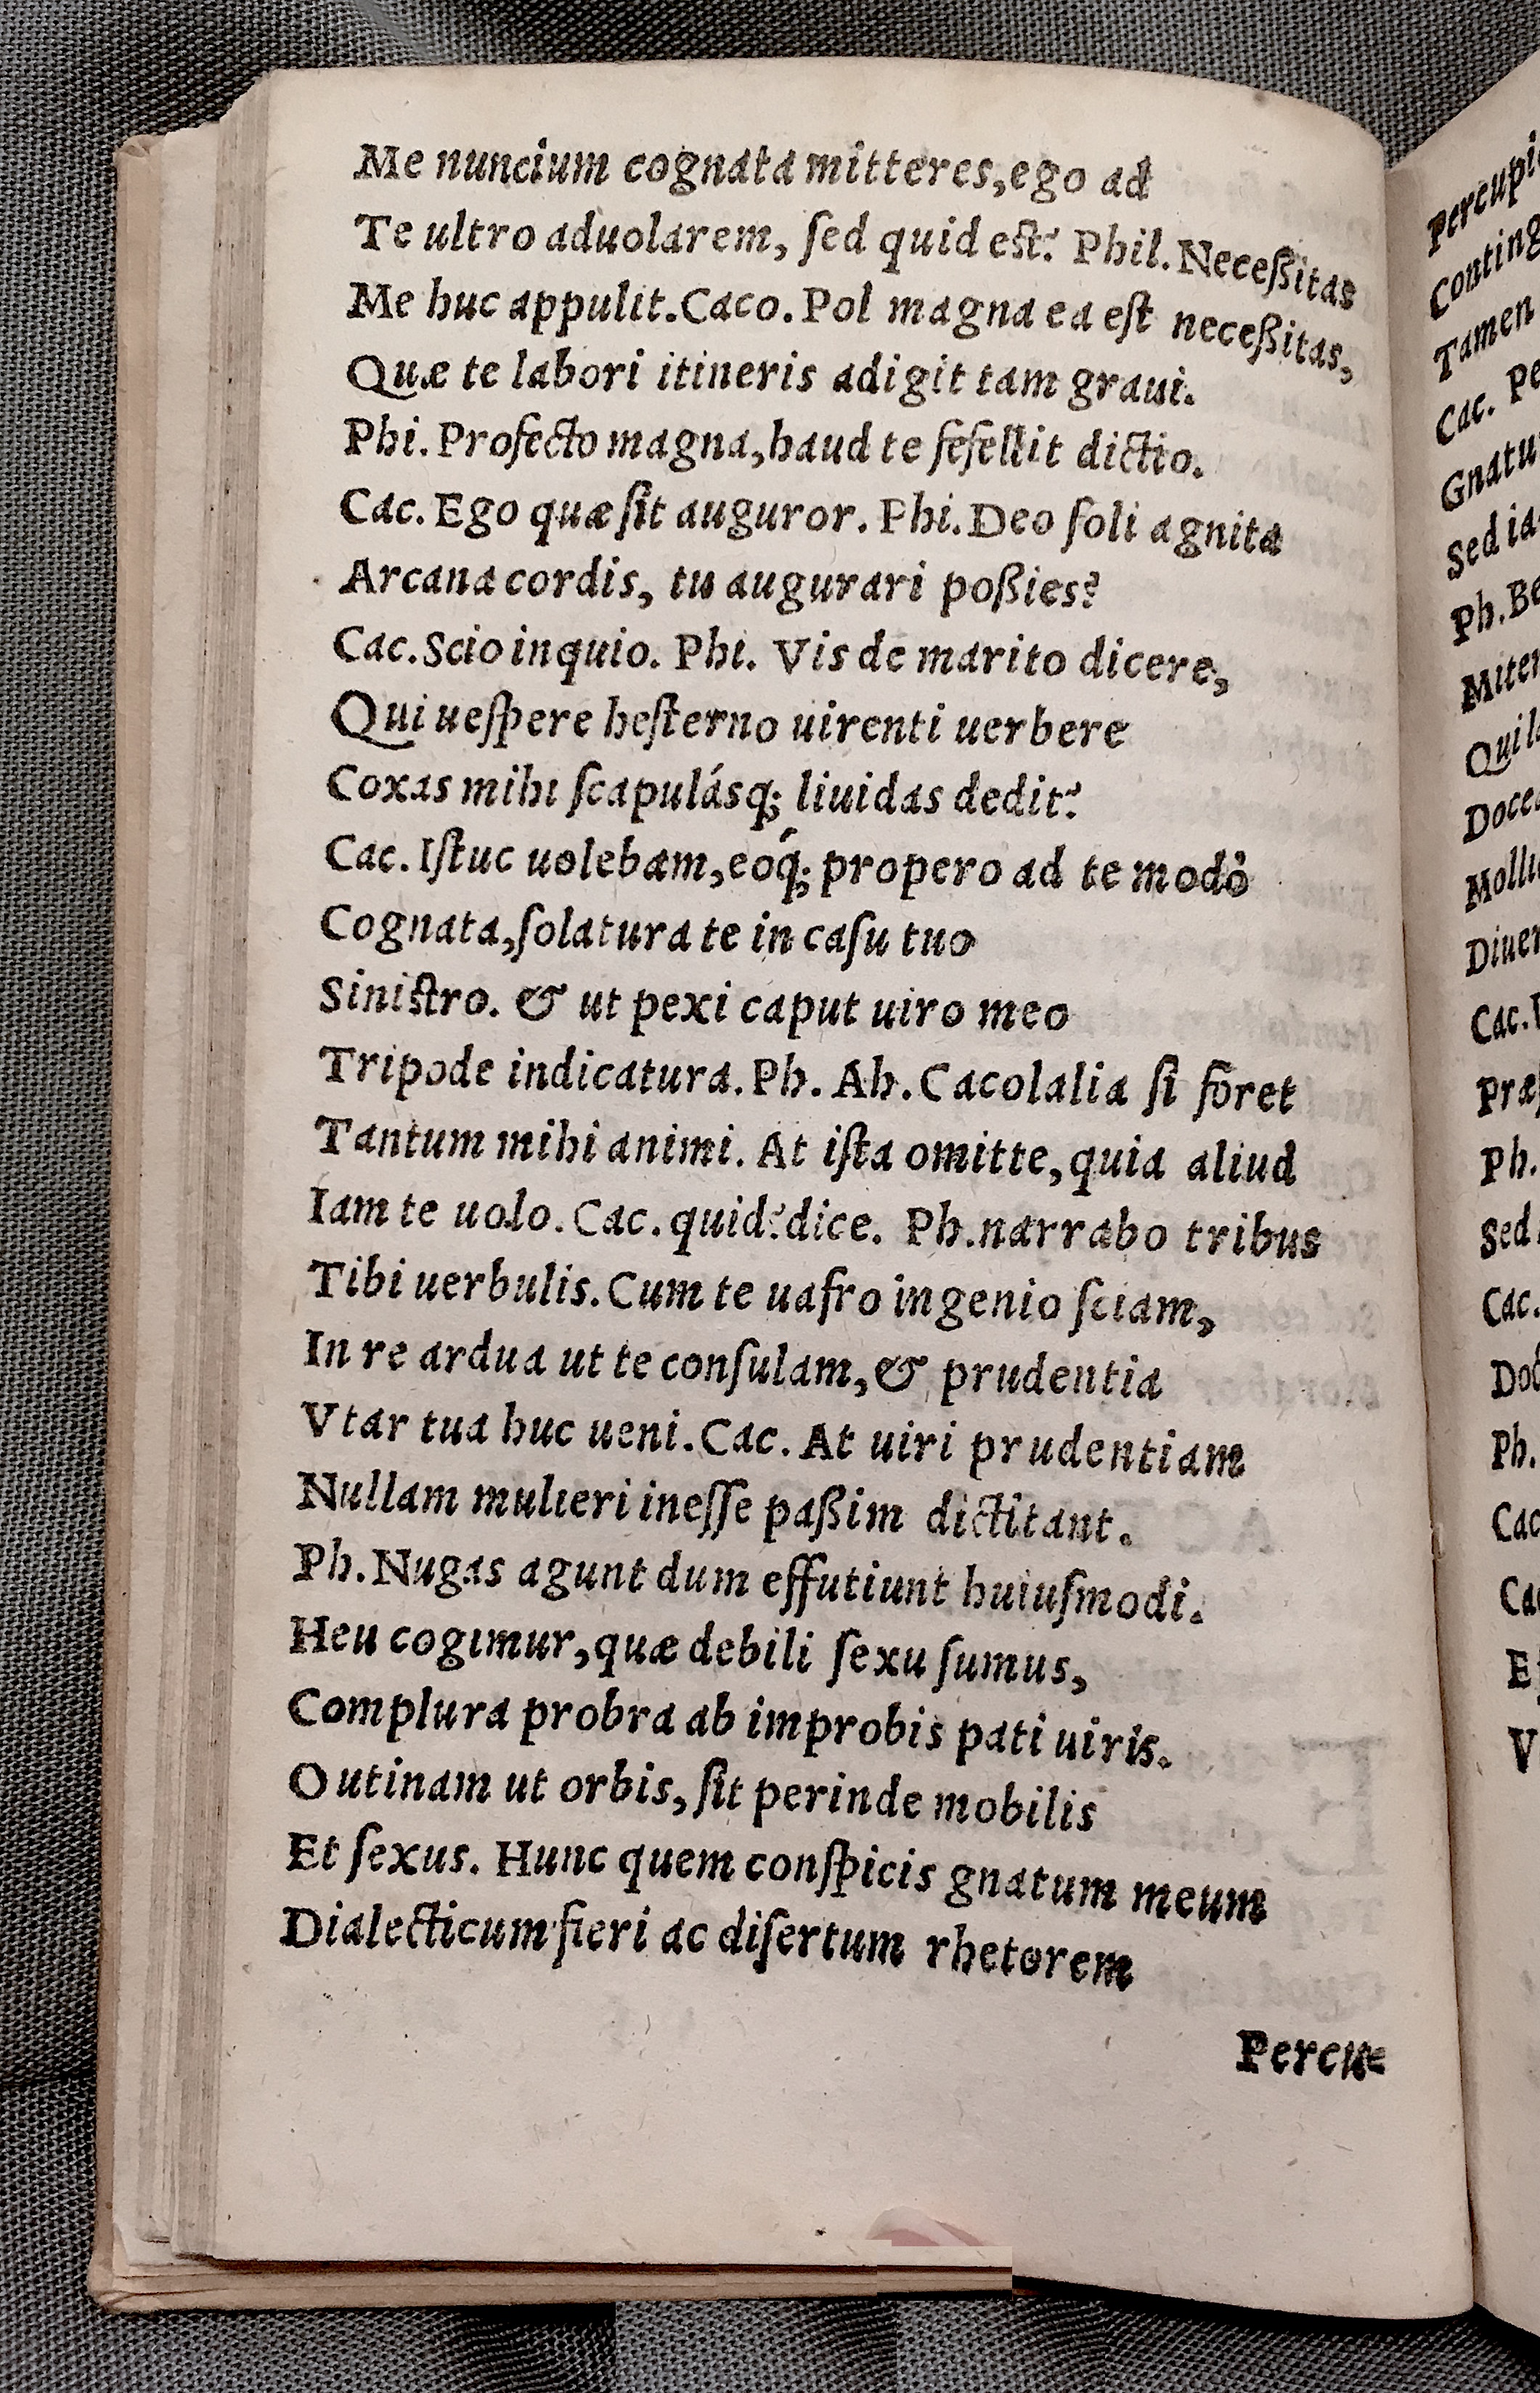 Me nuncium cognata mitteres, ego ad
Te ultro aduolarem, ſed quid eſt? Phil. Neceßitas
Me huc appulit. Caco. Pol magna ea eſt neceßitas,
Quæ te labori itineris adigit tam graui.
Phi. Profecto magna, haud te fefellit dictio.
Cac. Ego quæ ſit auguror. Phi. Deo ſoli agnita
Arcana cordis, tu augurari poßies?
Cac. Scio inquio. Phi. Vis de marito dicere,
Qui ueſpere heſterno uirenti uerbere
Coxas mihi ſcapulásq; liuidas dedit?
Cac. Iſtuc uolebam, eoq́; propero ad te modò
Cognata, ſolatura te in caſu tuo
Siniſtro. & ut pexi caput uiro meo
Tripode indicatura. Ph. Ah. Cacolalia ſi foret
Tantum mihi animi. At iſta omitte, quia aliud
Iam te uolo. Cac. quid? dice. Ph. narrabo tribus
Tibi uerbulis. Cum te uafro ingenio ſciam,
In re ardua ut te conſulam, & prudentia
Vtar tua huc ueni. Cac. At uiri prudentiam
Nullam mulieri ineſſe paßim dictitant.
Ph. Nugas agunt dum effutiunt huiuſmodi.
Heu cogimur, quæ debili ſexu ſumus,
Complura probra ab improbis pati uiris.
O utinam ut orbis, ſit perinde mobilis
Et ſexus. Hunc quem conſpicis gnatum meum
Dialecticum fieri ac diſertum rhetorem
Percu=
Conting
Tamen
Cac. Pe
Gnatu
Sed ia
Ph. Be
Miter
Qui la
Doce
Mollu
Diuer
Cac.
Præ
Ph.
Sed
Cac.
Ph.
Cac